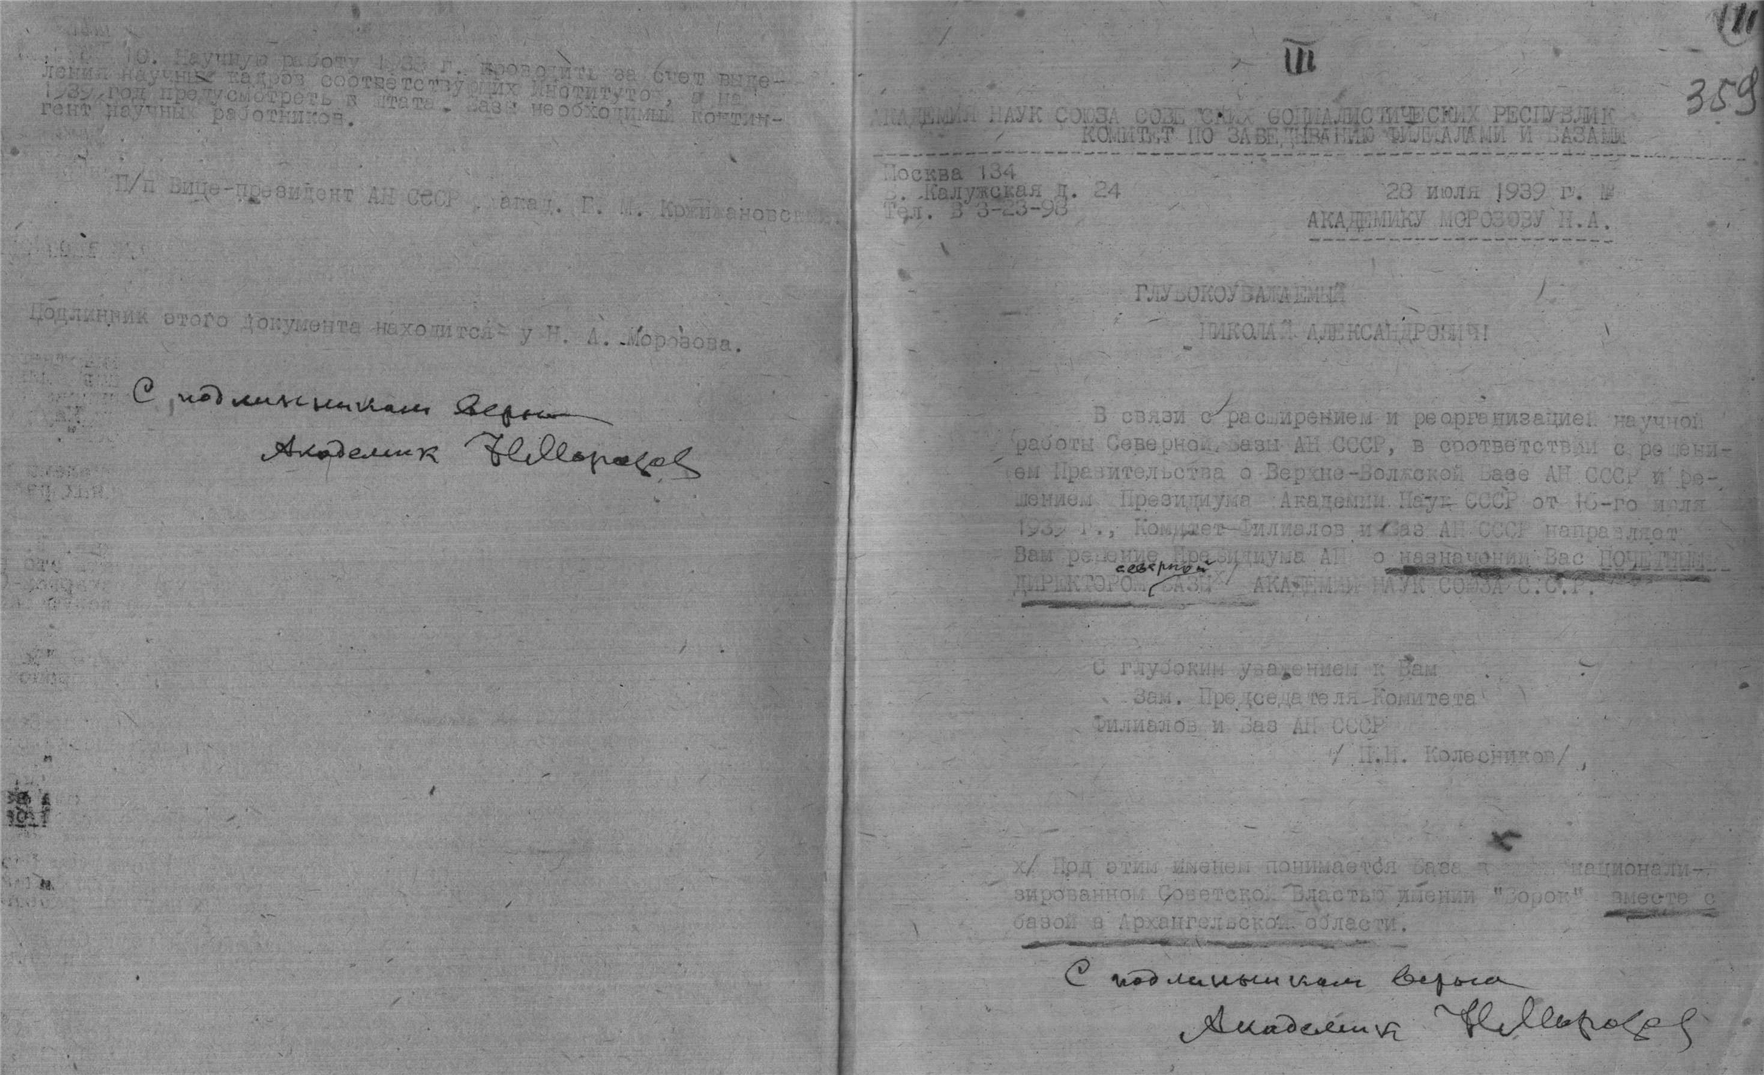 10. Научную работу 1939 г. проводить за счет выде-
ления научных кадров соответствующих Институтов, а на
1939 год предусмотреть в штата. Базы необходимый контин-
гент научных работников.
П/п Вице-президент АН СССР, акад. Г. М. Кожижановский.
Подлинник этого документа находится у Н. А. Морозова.
С подлинником верно
Академик Н Морозов
III
359
АКАДЕМИЯ НАУК СОЮЗА СОВЕТСКИХ СОЦИАЛИСТИЧЕСКИХ РЕСПУБЛИК
КОМИТЕТ ПО ЗАВЕДЫВАНИЮ ФИЛИАЛАМИ И БАЗАМИ
Москва 134
Б. Калужская д. 24
Тел. В 3-23-98
28 июля 1939 г. №
АКАДЕМИКУ МОРОЗОВУ Н.А.
ГЛУБОКОУВАЖАЕМЫЙ
НИКОЛАЙ АЛЕКСАНДРОВИЧ!
В связи с расширением и реорганизацией научной
работы Северной Базы АН СССР, в соответствии с решени-
ем Правительства о Верхне-Волжской Базе АН СССР и ре-
шением Президиума Академии Наук СССР от 16-го июля
1939 г., Комитет Филиалов и Баз АН СССР направляет
Вам решение Президиума АН о назначении Вас ПОЧЕТНЫМ
северной
ДИРЕКТОРОМ БАЗЫ х/ АКАДЕМИИ НАУК СОЮЗА С.С.Р.
С глубоким уважением к Вам
Зам. Председателя Комитета
Филиалов и Баз АН СССР
/ П.Н. Колесников/
х
х/ Под этим именем понимается База в национали-
зированном Советской Властью имении "Борок" вместе с
базой в Архангельской области.
С подлинником верно
Академик Н Морозов